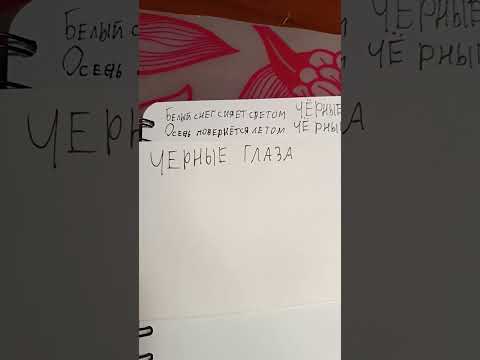 Белый снег сияет светом ЧЁРНЫЕ
Осень повернётся летом ЧЁРНЫ
ЧЕРНЫЕ ГЛАЗА